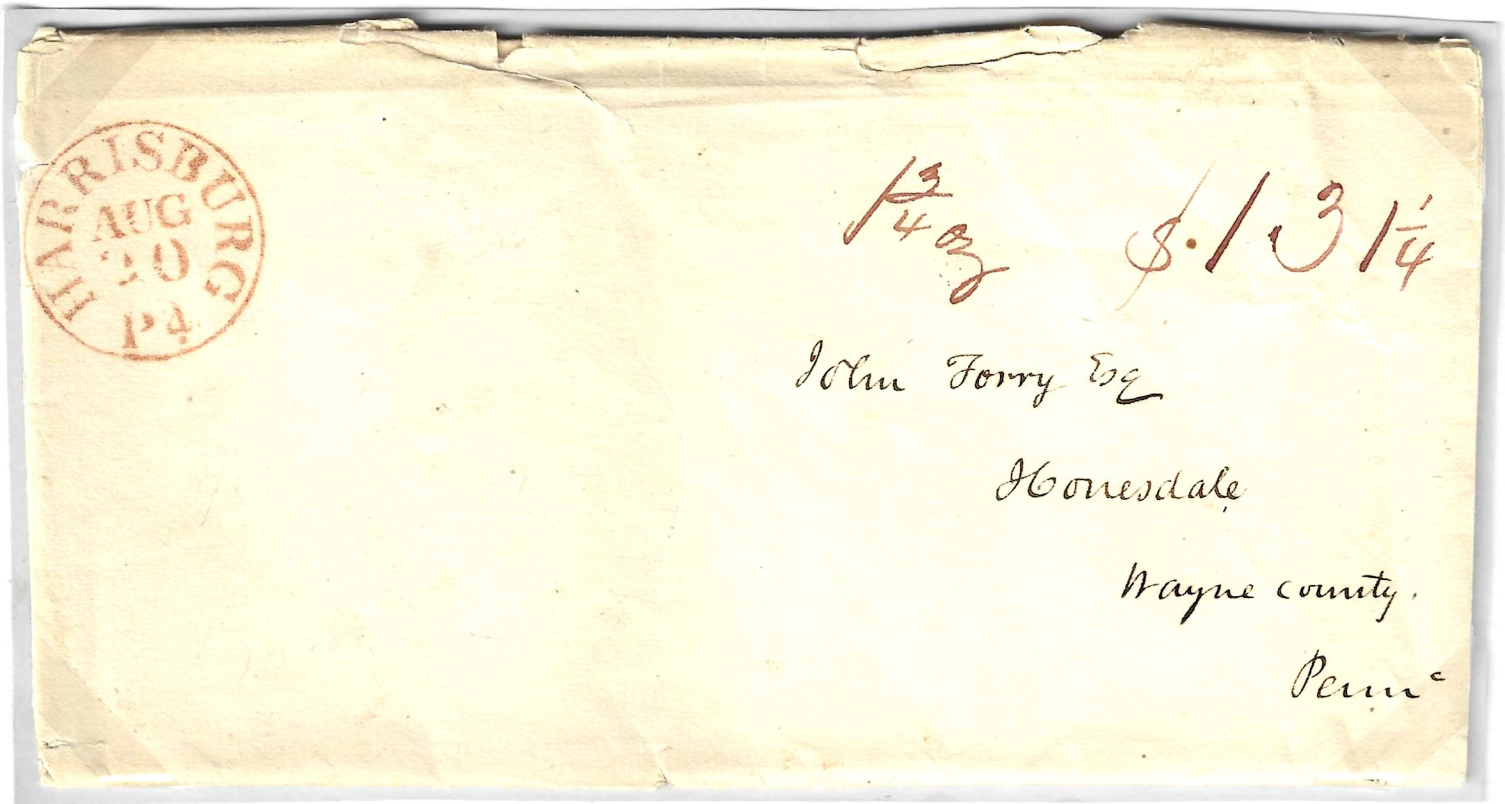 HARRISBURG
AUG
20
Pa
1 3/4 oz $.1 31 1/4
John Torry Esq
Honesdale
Wayne county.
Penna